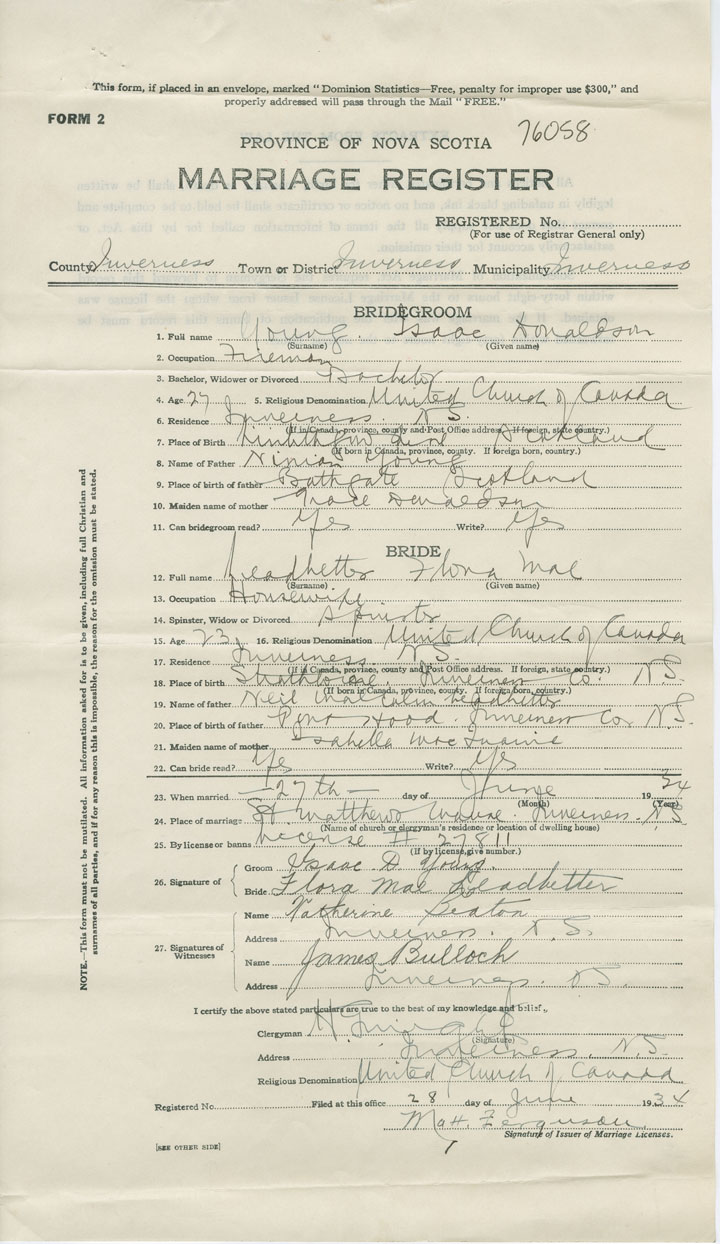 This form, if placed in an envelope, marked "Dominion Statistics—Free, penalty for improper use $300," and
properly addressed will pass through the Mail "FREE."
FORM 2
76058
PROVINCE OF NOVA SCOTIA
MARRIAGE REGISTER
REGISTERED No.
(For use of Registrar General only)
County Inverness Town or District Inverness Municipality Inverness
BRIDEGROOM
1. Full name Young Isaac Donaldson
(Surname) (Given name)
2. Occupation Fireman
3. Bachelor, Widower or Divorced Bachelor
4. Age 27 5. Religious Denomination United Church of Canada
6. Residence Inverness. N.S.
(If in Canada, province, county and Post Office address. If foreign, state country.)
7. Place of Birth Scotland
(If born in Canada, province, county. If foreign born, country.)
8. Name of Father Ninian Young
9. Place of birth of father Bathgate Scotland
10. Maiden name of mother Grace Donaldson
11. Can bridegroom read? Yes Write? Yes
BRIDE
12. Full name Leadbetter Flora Mae
(Surname) (Given name)
13. Occupation Housewife
14. Spinster, Widow or Divorced Spinster
15. Age 23 16. Religious Denomination United Church of Canada
17. Residence Inverness. N.S.
(If in Canada, province, county and Post Office address. If foreign, state country.)
18. Place of birth Strathlorne. Inverness Co. N.S.
(If born in Canada, province, county. If foreign born, country.)
19. Name of father Neil Malcolm Leadbetter
20. Place of birth of father Inverness Co. N.S.
21. Maiden name of mother Isabella
22. Can bride read? Yes Write? Yes
23. When married —27th— day of June 1934
(Month) (Year)
24. Place of marriage St Matthews Manse. Inverness. N.S.
(Name of church or clergyman's residence or location of dwelling house)
25. By license or banns License # 27811
(If by license, give number.)
26. Signature of Groom Isaac D Young.
Bride Flora Mae Leadbetter
27. Signatures of Witnesses
Name Katherine Beaton
Address Inverness. N.S.
Name James Bulloch
Address Inverness. N.S.
I certify the above stated particulars are true to the best of my knowledge and belief.
Clergyman
(Signature)
Address Inverness. N.S.
Religious Denomination United Church of Canada
Registered No. Filed at this office 28 day of June 1934
Matt. Ferguson
Signature of Issuer of Marriage Licenses.
[SEE OTHER SIDE]
NOTE.—This form must not be mutilated. All information asked for is to be given, including full Christian and
surnames of all parties, and if for any reason this is impossible, the reason for the omission must be stated.